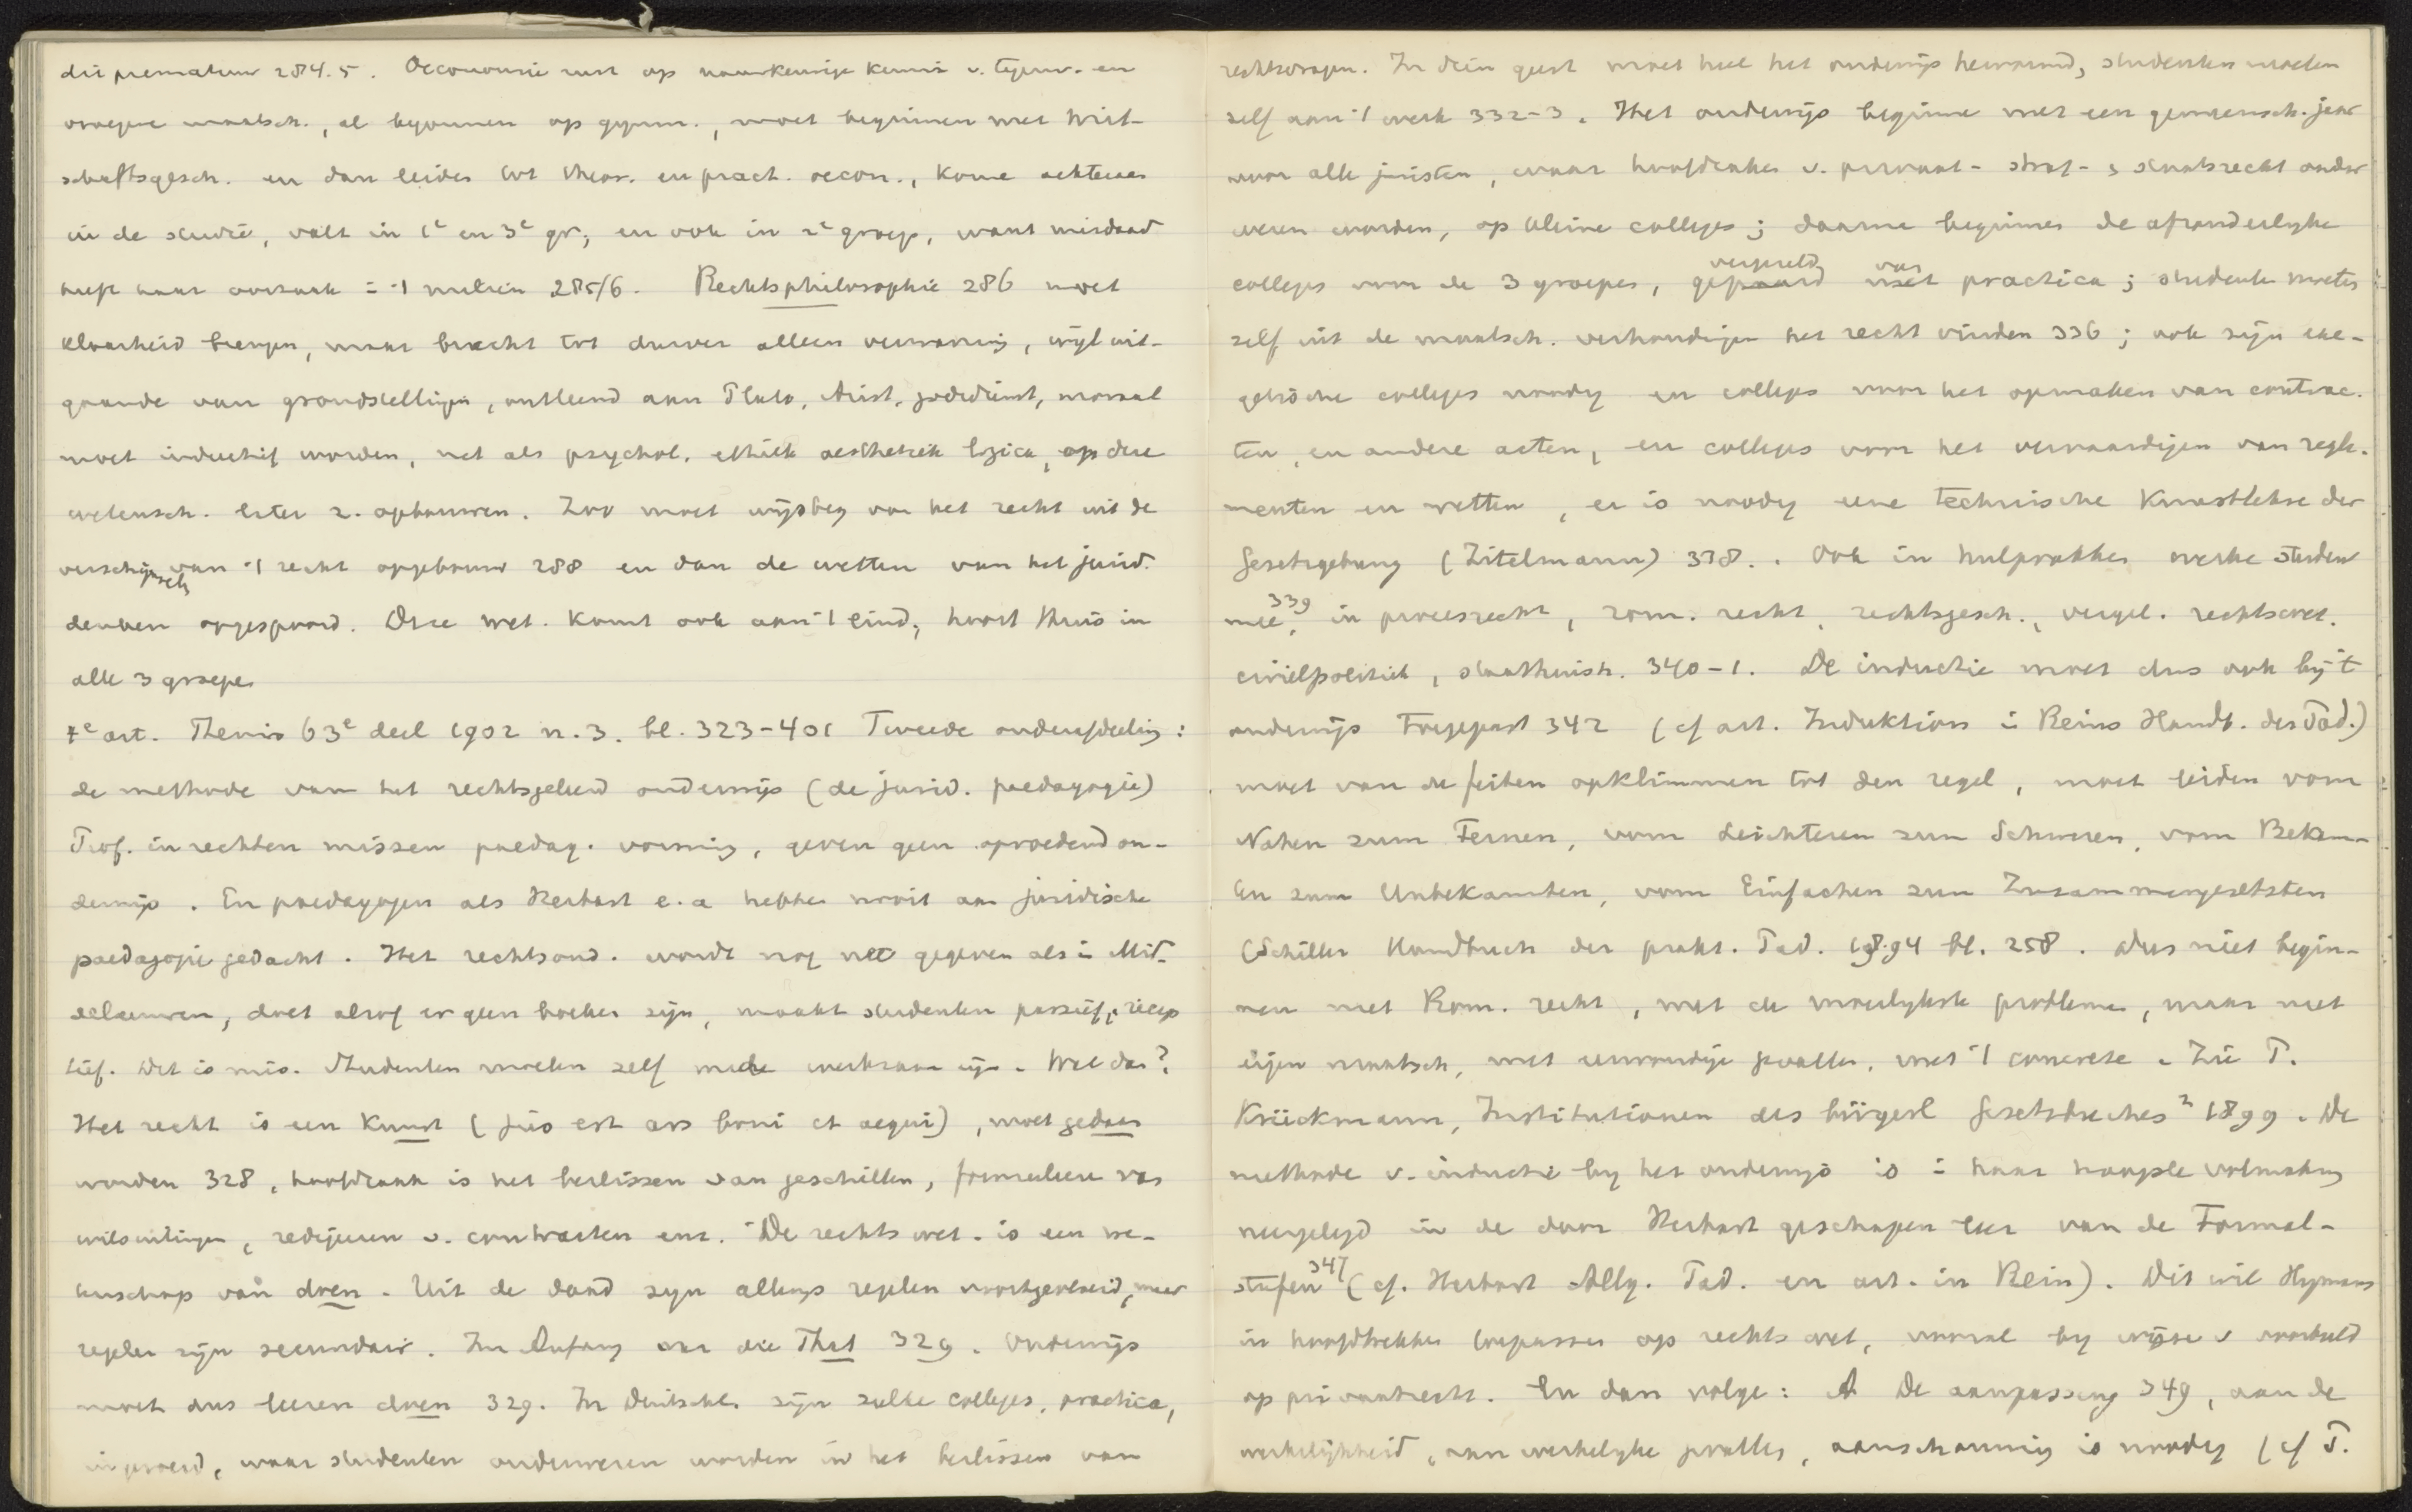 dit prematuur 284.5. Oeconomie rust op nauwkeurige kennis v. tegenw. en
vroegere maatsch., al begonnen op gymn., moet beginnen met Wirt-
schaftsgesch. en dan leiden tot theor. en pract. oecon., kome achteraan
in de studie, valt in 1e en 3e gr, en ook in 2e groep, want misdaad
heeft haar oorzaak in 't milieu 285/6. Rechtsphilosophie 286 moet
klaarheid brengen, maar bracht tot dusver alleen verwarring, wijl uit-
gaande van grondstellingen, ontleend aan Plato, Arist, godsdienst, moraal
moet inductief worden, net als psychol. ethiek aesthetiek logica, op deze
wetensch. later z. opbouwen. Zoo moet wijsbeg van het recht uit de
verschijnselen van 't recht opgebouwd 288 en dan de wetten van het jurid.
denken opgespoord. Deze wet. komt ook aan 't eind, hoort thuis in
alle 3 groepen
4e art. Themis 63e deel 1902 n. 3. bl. 323-401 Tweede onderafdeeling:
de methode van het rechtsgeleerd onderwijs (de jurid. paedagogie)
Prof. in rechten missen paedag. vorming, geven geen opvoedend on-
derwijs. En paedagogen als Herbart e.a hebben nooit aan juridische
paedagogie gedacht. Het rechtsond. wordt nog net gegeven als in Mid-
eleeuwen, doet alsof er geen boeken zijn, maakt studenten passief, recep
tief. Dit is mis. Studenten moeten zelf mede werkzaam zijn. Wat dan?
Het recht is een kunst (jus est ars boni et aequi), moet gedaan
worden 328, hoofdzaak is het beslissen van geschillen, formuleeren van
wilsuitingen, redigeeren v. contracten enz. De rechtswet. is een we-
tenschap van doen. Uit de daad zijn allengs regelen voortgevloeid, maar
regelen zijn secundair. Im Anfang war die That 329. Onderwijs
moet dus leeren doen 329. In Duitschl. zijn zulke colleges, practica,
ingevoerd, waar studenten onderwezen worden in het beslissen van
rechtsvragen. In dien geest moet heel het onderwijs hervormd, studenten moeten
zelf aan 't werk 332-3. Het onderwijs beginne met een gemeensch. jaar
voor alle juristen, waar hoofdzaken v. privaat- straf- & staatsrecht onder
wezen worden, op kleine colleges; daarna beginnen de afzonderlijke
colleges voor de 3 groepen, gepaard vergezeld met van practica; studenten moeten
zelf uit de maatsch. verhoudingen het recht vinden 336; ook zijn exe-
getische colleges noodig en colleges voor het opmaken van contrac-
ten, en andere acten, en colleges voor het vervaardigen van regle-
menten en wetten, er is noodig eene technische Kunstlehre der
Gesetzgebung (Zitelmann) 338. Ook in hulpvakken werke student
mee, 339 in procesrecht, rom. recht, rechtsgesch., vergel. rechtswet.
civielpolitiek, staathuish. 340-1. De inductie moet dus ook bij 't
onderwijs toegepast 342 (cf art. Induktion in Reins Handb. der Päd.)
moet van de feiten opklimmen tot den regel, moet leiden vom
Nahen zum Fernen, vom Leichteren zum Schweren, vom Bekann-
ten zum Unbekannten, vom Einfachen zum Zusammengesetzten
(Schiller Handbuch der prakt. Päd. 1894 bl. 258. Dus niet begin-
nen met Rom. recht, met de moeilijkste problemen, maar met
eigen maatsch, met eenvoudige gevallen, met 't concrete. Zie P.
Krückmann, Institutionen des bürgerl Gesetzbuches 2 1899. De
methode v. inductie bij het onderwijs is in haar hoogste volmaking
neergelegd in de door Herbart geschapen leer van de Formal-
stufen 347 (cf. Herbart Allg. Päd. en art. in Rein). Dit wil Hymans
in hoofdtrekken toepassen op rechtswet, vooral bij wijze v voorbeeld
op privaatrecht. En dan volge: A De aanpassing 349, aan de
werkelijkheid, aan werkelijke gevallen, aanschouwing is noodig (cf P.